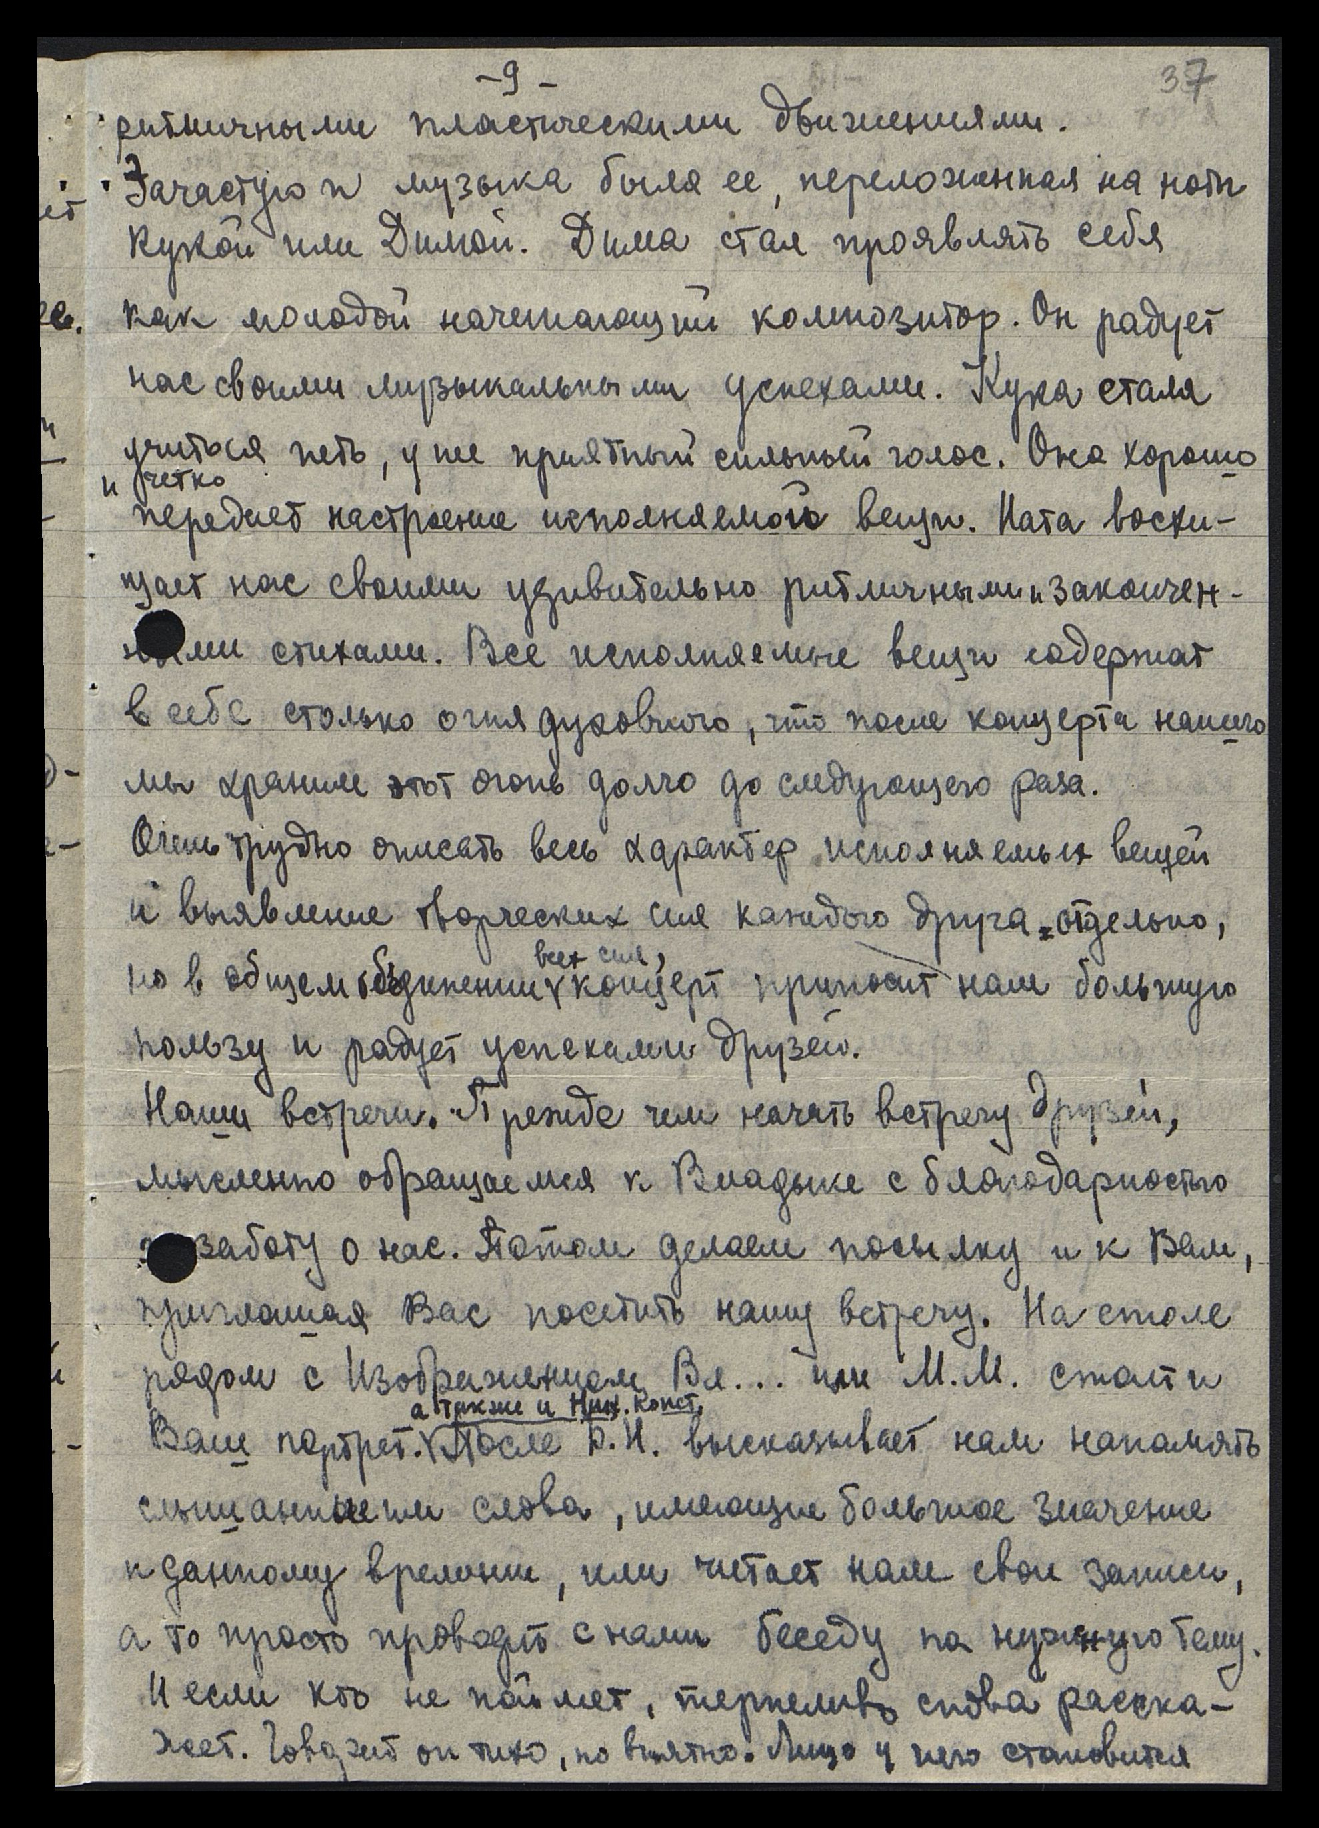 -9-
37
ритмичными пластическими движениями.
Зачастую и музыка была ее, переложенная на ноты
Кукой или Димой. Дима стал проявлять себя
как молодой начинающий композитор. Он радует
нас своими музыкальными успехами. Кука стала
учиться петь, у нее приятный сильный голос. Она хорошо
и четко
передает настроение исполняемой вещи. Ната восхи-
щает нас своими удивительно ритмичными и закончен-
ными стихами. Все исполняемые вещи содержат
в себе столько огня духовного, что после концерта нашего
мы храним этот огонь долго до следующего раза.
Очень трудно описать весь характер исполняемых вещей
и выявление творческих сил каждого друга отдельно,
всех сил,
но в общем объединении концерт приносит нам большую
пользу и радует успехами друзей.
Наши встречи. Прежде чем начать встречу друзей,
мысленно обращаемся к Владыке с благодарностью
за заботу о нас. Потом делаем посылку и к Вам,
приглашая Вас посетить нашу встречу. На столе
рядом с Изображением Вл... или М.М. стоит и
а также и Ник. Конст.
Ваш портрет. После Б.Н. высказывает нам на память
слышанные им слова, имеющие большое значение
к данному времени, или читает нам свои записи,
а то просто проводит с нами беседу на нужную тему.
И если кто не поймет, терпеливо снова расска-
жет. Говорит он тихо, но внятно. Лицо у него становится